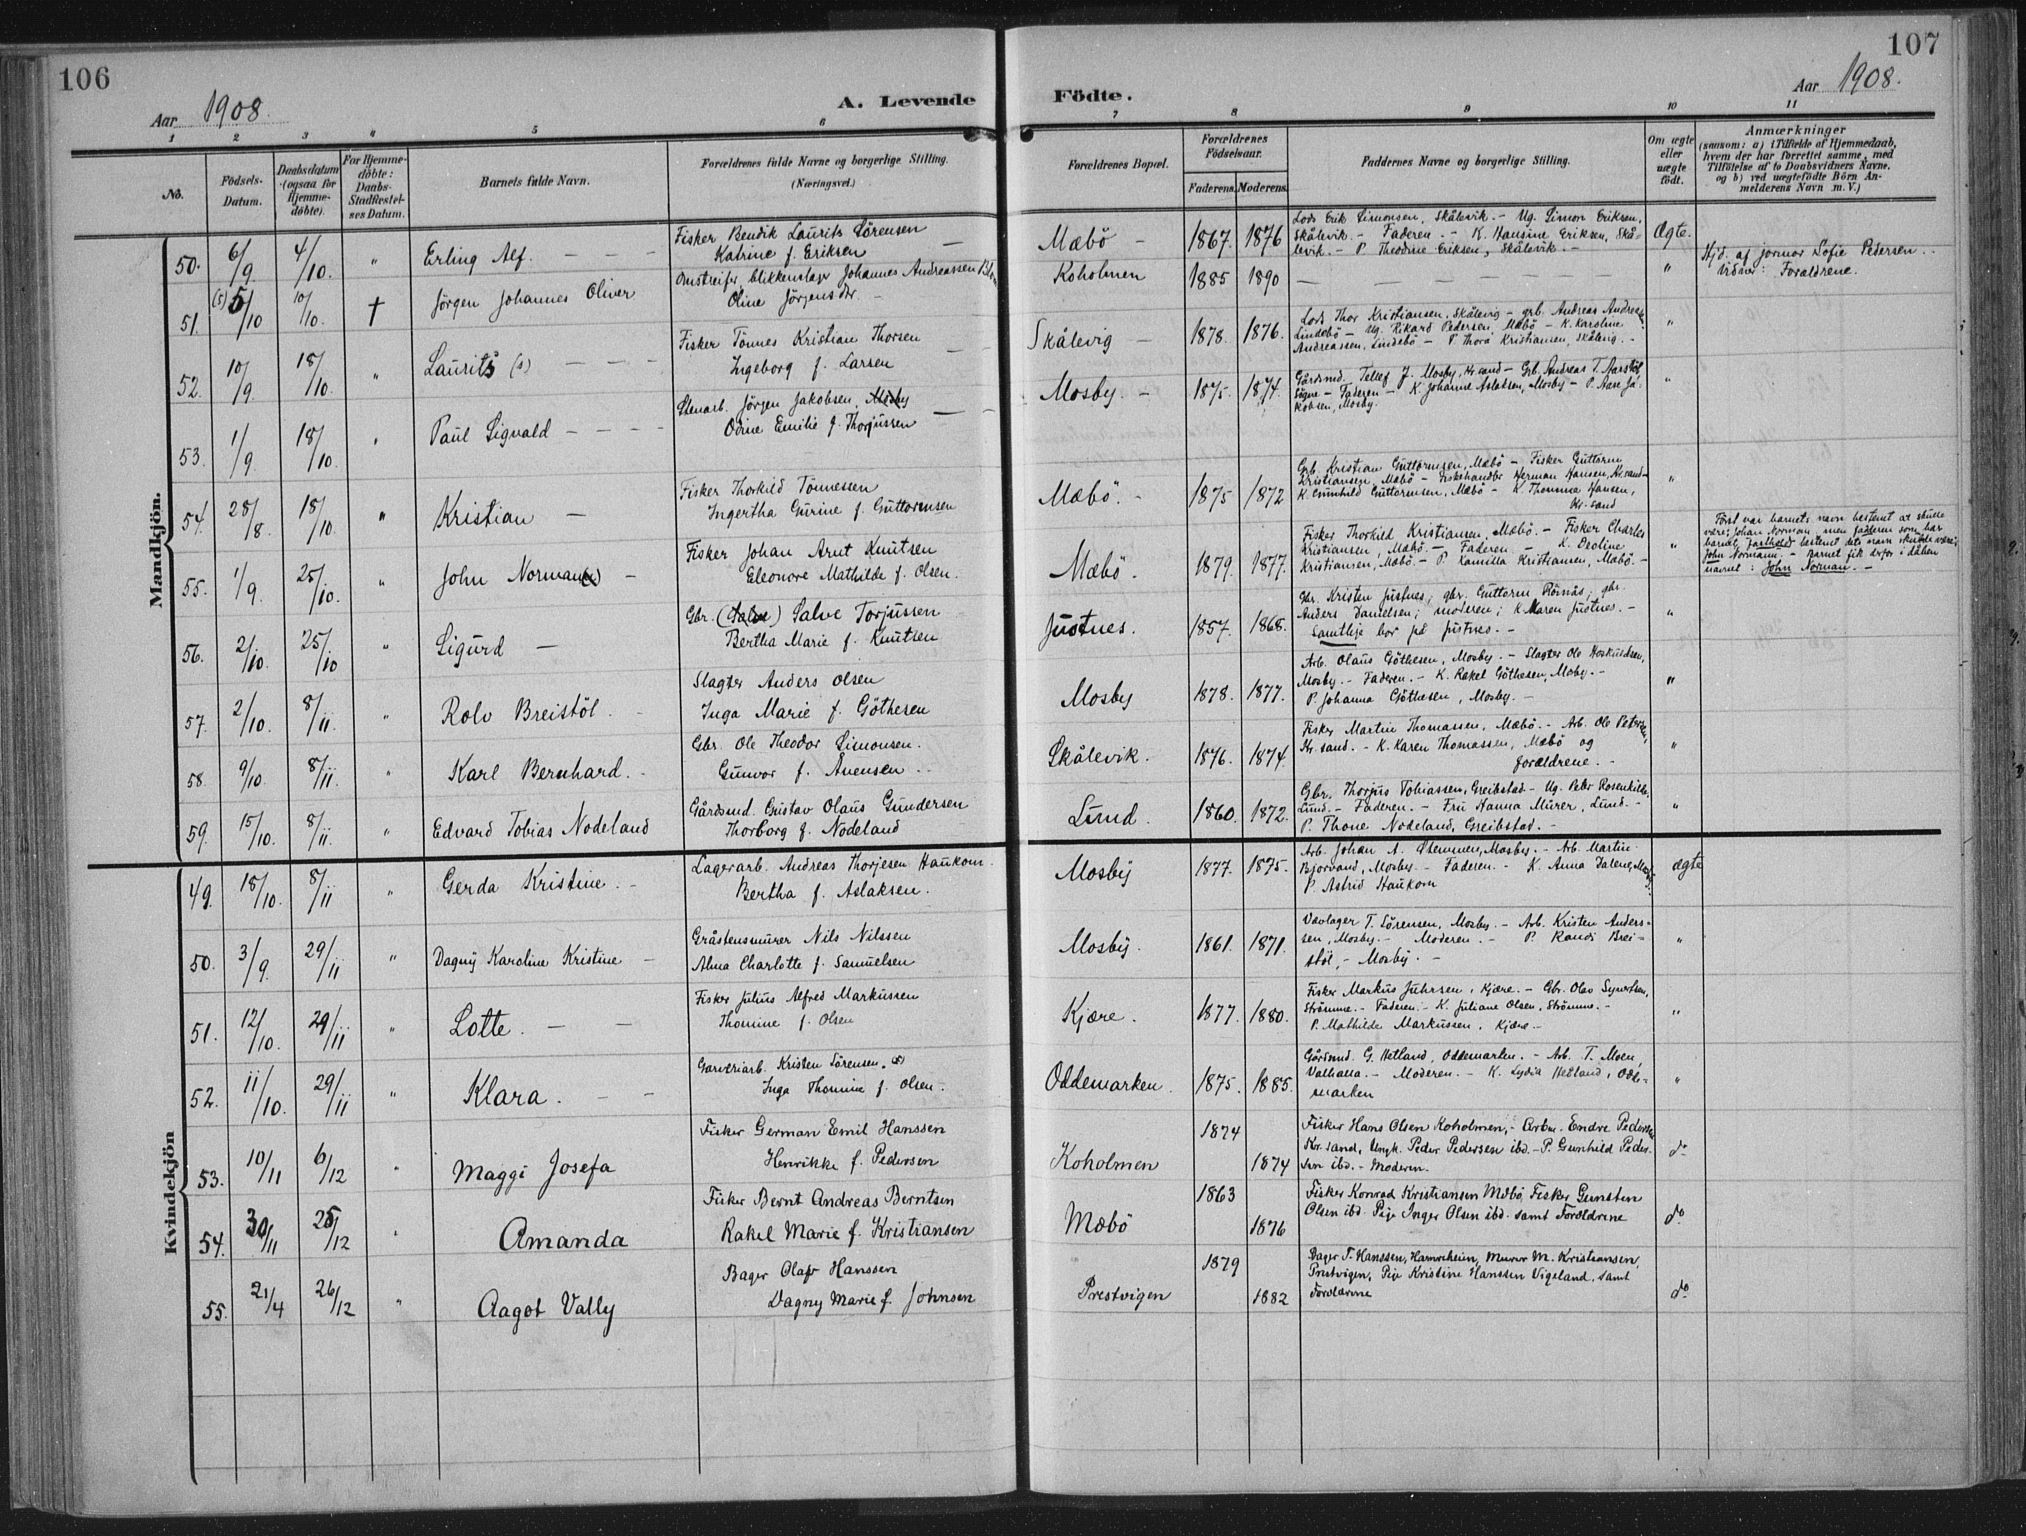 106
107
Aar 1908.
A. Levende
Födte.
Aar 1908.
1 2 3 " 5 6 7 8 9 10 11
No.
Födsels-
Datum.
Daabsdatum
(ogsaa for
Hjemme-
döbte).
For Hjemme-
döbte:
Daabs-
Stadfæstel-
ses Datum.
Barnets fulde Navn.
Forældrenes fulde Navne og borgerlige Stilling.
(Næringsvei.)
Forældrenes Bopæl.
Forældrenes
Födselsaar.
Faderens. Moderens.
Faddernes Navne og borgerlige Stilling.
Om ægte
eller
uægte
födt.
Anmærkninger
(saasom: a) i Tilfælde af Hjemmedaab,
hvem der har forrettet samme, med
Tilföielse af to Daabsvidners Navne.
og b) ved uægtefödte Börn An-
melderens Navn m. V.)
Mandkjön.
50. 6/9 4/10. " Erling Alf. — — —
Fisker Bendik Laurits Sörensen
Katrine f. Eriksen —
Mæbö — 1867. 1876
Lods Erik Simonsen, Skålevik. — Ug. Simon Eriksen,
Skålevik. — Faderen. — K. Hansine Eriksen, Skå-
levik. — P. Theodine Eriksen, Skålevik. —
Ægte.
51. (5) 5/10 10/10. † Jörgen Johannes Oliver
Omstreifer, blikkenslager Johannes Andreassen
Oline Jörgensdr. —
Koholmen 1885 1890 — — — — "
Hjd. af jormor Sofie Pedersen.
Vidner: Forældrene.
52. 10/9. 18/10. " Laurits (s) — — —
Fisker Tönnes Kristian Thorsen
Ingeborg f. Larsen —
Skålevig — 1878. 1876.
Lods Thor Kristiansen, Skålevig — grb. Andreas Andreas
Lindebö — Ug. Rikard Pedersen, Mæbö — K. Karoline
Andreassen, Lindebö — P. Thora Kristiansen, Skålevig. —
"
53. 1/9. 18/10. " Paul Sigvald — — — —
Stenarb. Jörgen Jakobsen, Mosby
Odine Emilie f. Thorjussen —
Mosby. — 1875. 1874.
Gårdsmd. Tellef J. Mosby, Kr.sand — Grb. Andreas T. Aarstöl,
Sögne — Faderen — K Johanne Aslaksen, Mosby — P. Aase Ja-
kobsen, Mosby.
"
54. 28/8. 18/10. " Kristian —
Fisker Thorkild Tönnessen
Ingertha Gurine f. Guttormsen
Mæbö. — 1875 1872
Grb. Kristian Guttormsen, Mæbö — Fisker Guttorm
Kristiansen, Mæbö — Fiskehandler Herman Hansen, Kr.sand —
K. Gunhild Guttormsen, Mæbö — K. Thomine Hansen,
Kr.sand
"
55. 1/9. 25/10. John Norman —
Fisker Johan Arnt Knutsen
Eleonore Mathilde f. Olsen.
Mæbö. 1879. 1877.
Fisker Thorkild Kristiansen, Mæbö. — Fisker Charles
Kristiansen, Mæbö — Faderen — K. Oroline
Kristiansen, Mæbö. — P. Kamilla Kristiansen, Mæbö. —
"
Först var barnets navn bestemt at skulle
være: Johan Norman, men faderen som bar
barnet bestemt dets navn skulde være:
John Normann. — Barnet fik drfor i dåben
navnet: John Norman. —
56. 2/10. 25/10 " Sigurd —
Gbr. Salve Torjussen
Bertha Marie f. Knutsen
Justnes. 1857. 1868.
Gbr. Kristen Justnes; gbr. Guttorm Rösnås; gbr.
Anders Danielsen; moderen; K Maren Justnes. —
Samtlige bor på Justnes. —
"
57. 2/10. 8/11. " Rolv Breistöl. —
Slagter Anders Olsen
Inga Marie f. Göthesen
Mosby 1878. 1877.
Arb. Olaus Göthesen, Mosby. — Slagter Ole Hoskuldsen,
Mosby. — Faderen. — K. Rakel Göthesen, Moby. —
P. Johanna Göthesen, Mosby. —
"
58. 9/10. 8/11. " Karl Bernhard. —
Gbr. Ole Theodor Simonsen.
Gunvor f. Avensen. —
Skålevik. 1876. 1874
Fisker Martin Thomassen, Mæbö. — Arb. Ole Petersen,
Kr.sand. — K. Karen Thomassen, Mæbö og
forældrene. —
"
59. 15/10. 8/11. " Edvard Tobias Nodeland
Gårdsmd. Gustav Olaus Gundersen
Thorborg f. Nodeland
Lund. 1860. 1872.
Gbr. Thorjus Tobiassen, Greibstad — Ug. Peter Rosenkilde,
Lund. — Faderen. — Fru Hanna Mürer, Lund. —
P. Thone Nodeland, Greibstad. —
"
Kvindekjön
49. 18/10. 8/11 " Gerda Kristine. —
Lagerarb. Andreas Thorjesen Haukom.
Bertha f. Aslaksen.
Mosby 1877. 1875.
Arb. Johan A. Stemmen, Mosby. — Arb. Martin
Bjorvand, Mosby. — Faderen. — K. Anna Dalene,
P. Astrid Haukom
ægte
50. 3/9. 29/11 " Dagny Karoline Kristine —
Gråstensmürer Nils Nilssen
Alma Charlotte f. Samuelsen
Mosby. 1861. 1871.
T. Sörensen, Mosby. — Arb. Kristen Anders-
sen, Mosby. — Moderen. — P. Randi Brei-
stöl, — Mosby. —
"
51. 12/10. 29/11 " Lotte. — —
Fisker Julius Alfred Markussen
Thomine f. Olsen
Kjære. 1877. 1880.
Fisker Markus Juhrsen, Kjære. — Gbr. Olav Syvertsen,
Strömme. — Faderen. — K. Juliane Olsen, Strömme. —
P. Mathilde Markussen, Kjære. —
"
52. 11/10. 29/11 " Klara. — —
Garveriarb. Kristen Sörensen. (s)
Inga Thomine f. Olsen.
Oddemarken. 1875. 1885.
Gårdsmd. G. Hetland, Oddemarken. — Arb. T. Moen,
Valhalla. — Moderen. — K. Lydia Hetland, Odde-
marken
"
53. 10/11 6/12 " Maggi Josefa
Fisker German Emil Hanssen
Henrikke f. Pedersen
Koholmen 1874 1874
Fisker Hans Olsen Koholmen, — Arbm. Endre Pedersen
Kr.sand, Ungk. Peder Pedersen ibd. — P. Gunhild Peder-
sen ibd. — Moderen.
do
54. 30/11 25/12 " Amanda
Fisker Bernt Andreas Berntsen
Rakel Marie f. Kristiansen
Mæbö 1863 1876
Fisker Konrad Kristiansen Mæbö, Fisker Gunsten
Olsen ibd. Pige Inger Olsen ibd. samt Forældrene
do
55. 21/4 26/12 " Aagot Vally
Bager Olaf Hanssen
Dagny Marie f. Johnsen
Prestvigen 1879 1882
Bager T. Hanssen, Hamreheien, Murer M. Kristiansen,
Prestvigen, Pige Kristine Hanssen Vigeland, samt
Forældrene
do